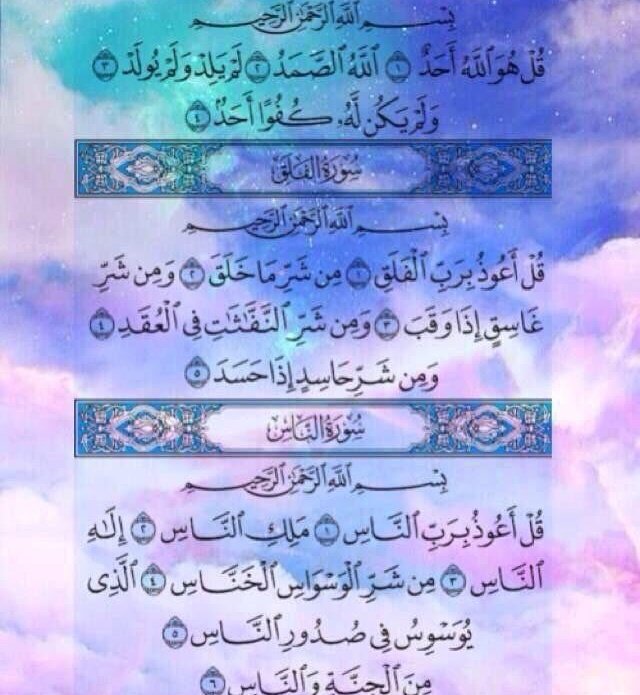 بِسْمِ ٱللَّهِ ٱلرَّحْمَٰنِ ٱلرَّحِيمِ
قُلْ هُوَ ٱللَّهُ أَحَدٌ ١ ٱللَّهُ ٱلصَّمَدُ ٢ لَمْ يَلِدْ وَلَمْ يُولَدْ ٣
وَلَمْ يَكُن لَّهُۥ كُفُوًا أَحَدٌۢ ٤
سُورَةُ الفَلَقِ
بِسْمِ ٱللَّهِ ٱلرَّحْمَٰنِ ٱلرَّحِيمِ
قُلْ أَعُوذُ بِرَبِّ ٱلْفَلَقِ ١ مِن شَرِّ مَا خَلَقَ ٢ وَمِن شَرِّ
غَاسِقٍ إِذَا وَقَبَ ٣ وَمِن شَرِّ ٱلنَّفَّٰثَٰتِ فِى ٱلْعُقَدِ ٤
وَمِن شَرِّ حَاسِدٍ إِذَا حَسَدَ ٥
سُورَةُ النَّاسِ
بِسْمِ ٱللَّهِ ٱلرَّحْمَٰنِ ٱلرَّحِيمِ
قُلْ أَعُوذُ بِرَبِّ ٱلنَّاسِ ١ مَلِكِ ٱلنَّاسِ ٢ إِلَٰهِ
ٱلنَّاسِ ٣ مِن شَرِّ ٱلْوَسْوَاسِ ٱلْخَنَّاسِ ٤ ٱلَّذِى
يُوَسْوِسُ فِى صُدُورِ ٱلنَّاسِ ٥
مِنَ ٱلْجِنَّةِ وَٱلنَّاسِ ٦